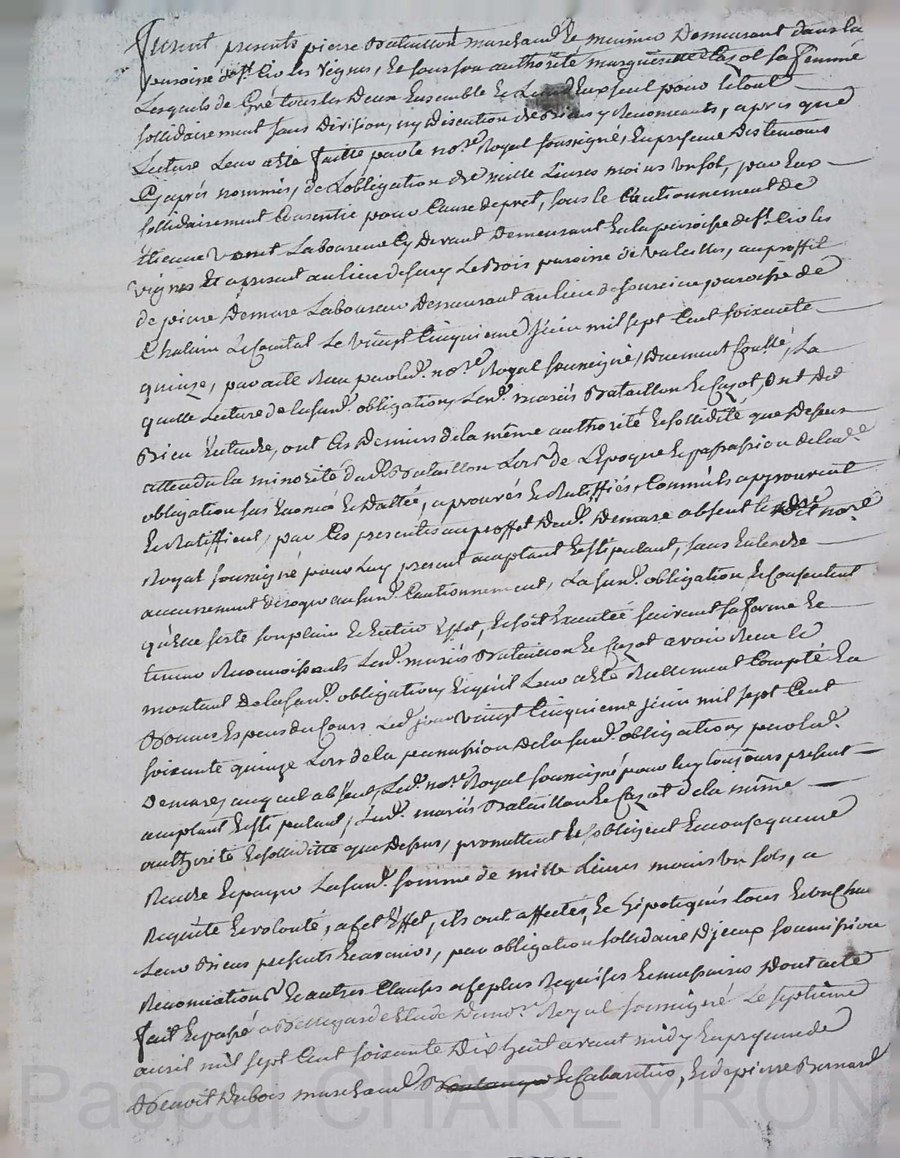 Furent presents pierre Bataillon marchand et meunier Demeurant dans la
paroisse de st. Cir les vignes, et sous son authorité marguerite Cazot sa femme
Lesquels de Gré tous les Deux Ensemble et L'un d'Eux seul pour le tout
sollidairement sans Division, ny Discution de Biens y Renonçants, apres que
Lecture Leur a été faitte par le nore. Royal soussigné, En presence Des temoins
Cy après nommés, de L'obligation de mille Livres moins un sol, par Eux
sollidairement Consentie pour Cause de pret, sous le Cautionnement de
Etienne Laboureur Cy Devant Demeurant En la paroisse de st. Cir les
vignes Et a present au lieu de Le Bois paroisse de Valeilles, au proffit
de pierre Demare Laboureur Demeurant au lieu de paroisse de
Chalain Le Comtal Le vingt Cinquieme juin mil sept Cent soixante
quinze, par acte Reçu par led. nore. Royal soussigné, Duement Conllé, La
quelle Lecture de la susd. obligation, Lesd. mariés Bataillon et Cazot, ont Dit
Bien Entendre, ont Ces Derniers de la même authorité et sollidité que Dessus
attendu la minorité dud. Bataillon Lors de L'Epoque et passassion de lad.
obligation sus Enoncé et Dattée, aprouvés et Ratiffiés, Comm'ils approuvent
et Ratiffient, par Ces presentes au proffet dud. Demare absent le dit nore.
Royal soussigné pour Luy present acceptant et stipulant, sans Entendre
aucunement deroger au susd. Cautionnement, La susd. obligation, et Consentent
qu'Elle sorte son plain et Entier Effet, et soit Executée suivant sa forme et
teneur Reconnoissants Lesd. mariés Bataillon et Cazot avoir Reçu le
montant De la susd. obligation, et qu'il Leur a été Reellement Compté En
Bonnes Especes du Cours Led. jour vingt Cinquieme juin mil sept Cent
soixante quinze Lors de la passassion De la susd. obligation, par led.
Demare, auquel absent, Led. nore. Royal soussigné pour luy toujours present
acceptant et stipulant, Lesd. mariés Bataillon et Cazot de la même
authorité et solliditte que Dessus, promettent et s'obligent En consequence
Rendre et payer La susd. somme de mille Livres moins un sols, a
Requete et volonté, a Cet Effet, ils ont affectés, et Hipotequés tous et un Chun
Leur Biens presents et avenirs, par obligation sollidaire D'jceux soumission
Renonciations et autres Clauses a ce plus Requises et nessaires Dont acte
fait et passé a Bellegarde Etude Du nore. Royal soussigné Le septième
avril mil sept Cent soixante Dix huit avant midy En presence de
Benoit Dubois marchand et Cabartier, et de pierre Bernard
Pascal CHAREYRON